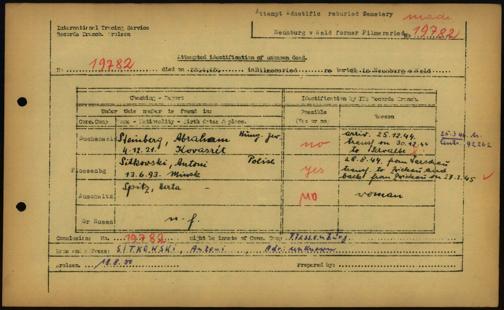 Attempt Identific reburied Cemetery
made
International Tracing Service
Records Branch Arolsen
Neunburg v Wald former Pilmersried
19782
Attempted identification of unknown dead.
No 19782 died on in Pilmersried re buried in Neunburg v Wald
Checking - Report
Identification by ITS Records Branch.
Under this number is found in
Possible
Reason
Conc.Camp Name - Nationality - Birth date & place.
(Yes or no)
Buchenwald Steinberg, Abraham Hung. Jew
4.12.21. Kovaszit
no
arriv. 25.12.44.
transf. on 30.12.44
to
Flossenbg Sitkovski, Antoni Polish
13.6.93 Minsk
yes
28.8.44 from Warschau
transf. to Zwickau and
back from Zwickau on
Auschwitz Spitz, Berta -
NO
woman
Gr Rosen n.f.
Conclusion: No. 19782 might be inmate of Conc. Camp Flossenbürg
SITKOWSKI, Antoni Adr: unknown
Arolsen, 18.8.50 Prepared by: